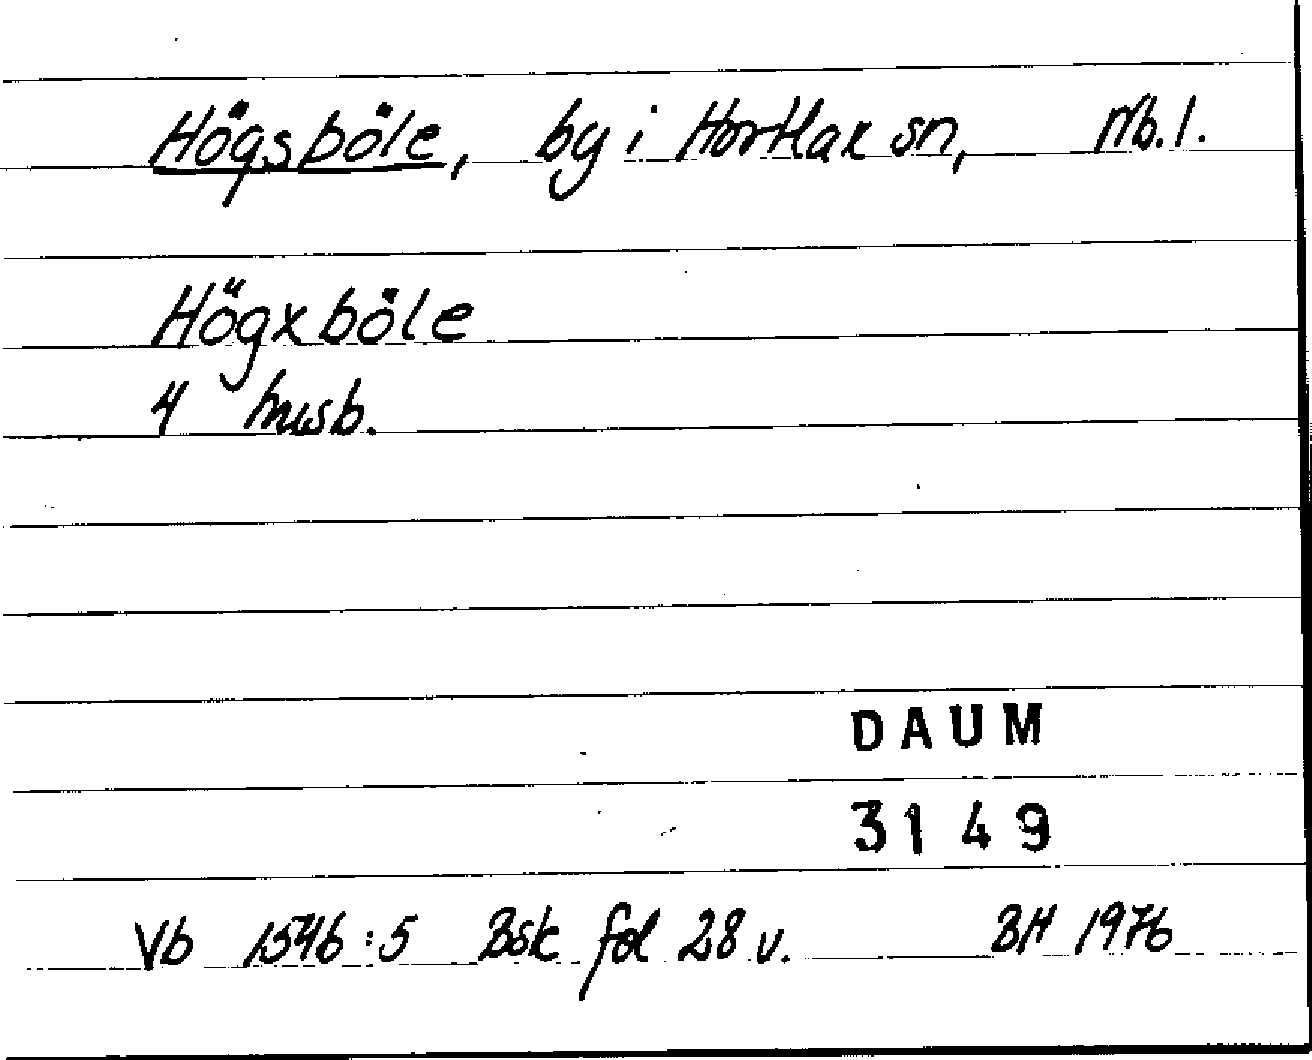 Högsböle, by i Hortlax sn, Nb. l.
Högxböle
4 husb.
DAUM
3149
Vb 1546:5 Bsk fol 28 v. BH 1976